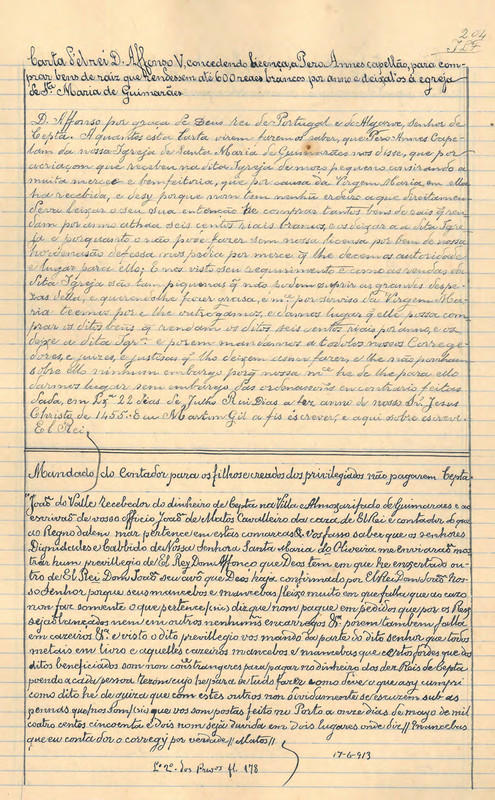 204
Carta d'elrei D. Affonso V, concedendo licença, a Pero Annes capellão, para com-
prar bens de raiz que rendessem até 600 reaes brancos por anno e deixal-os á egreja
de Sta Maria de Guimarães
D. Affonso por graça de Deus rei de Portugal e do Algarve, senhor de
Cepta. A quantos esta carta virem fazemos saber, que Pero Annes Cape-
lam da nossa Igreja de Santa Maria de Guimarães nos disse, que por
criaçom que recebeu na dita Igreja de moço pequeno consirando a
muita mercee e bemfeitoria, que por causa da Virgem Maria em ella
ha recebida, e desy porque nom tem nenhu erdeiro a que direitamen-
te deva leixar o seu sua entenção he comprar tantos bens de raiz q̃ ren-
dam por anno athda seis centos reais brancos, e os deixar a a dita Igre-
ja e porquanto o não pode fazer sem nossa licensa por bem de nossa
hordenasão defessa nos pedia por merce q̃ lhe decemos autoridade
e lugar para ello; E nos visto seu requerimento e como as rendas da
dita Igreja são tam piquenas q̃ não podem suprir as grandes despe-
zas della, e querendo lhe fazer grasa, e mce por serviso da Virgem Ma-
ria teemos por e lhe outrogamos, e damos lugar q̃ elle possa com-
prar os ditos bens q̃ rendam os ditos seis sentos reais por anno, e os
deixe a dita Igra e porem mandamos a todolos nossos Correge-
dores, e juizes, e justisas q̃ lho deixem asim fazer, e lhe não ponham
sobre ello ninhum embargo porq̃ nossa mce he de lhe para ello
darmos lugar sem embargo das ordenasões em contrario feitas
dada, em Lxa 22 dias de Julho Rui Dias a fez anno de nosso Snr Jesus
Christo de 1455. E eu Martim Gil a fis escrever, e aqui sobre escrevi.
El Rei
Mandado do Contador para os filhos e creados dos privilegiados não pagarem Cepta
"João do Valle recebedor do dinheiro de Cepta na Villa e Almoxarifado de Guimarães e ao
escrivão de vosso officio João de Matos Cavalleiro da caza de El Rei e contador do que
ao Regno dalem mar pertence em estas comarcas &. Vos fasso saber que os senhores
Dignidades e Cabbido de Nossa Senhora Santa Maria da Oliveira me enviarão mos-
trar hum previllegio de El Rey Dom Affonço que Deos tem em que he enxertado ou-
tro de El Rei Dom João seu avô que Deos haja confirmado por El Rei Dom João Nos-
so Senhor porque seus mancebos e mancebas
non faz somente o que pertence (sic) diz que nom paguem pedidos que por os Reis
sejão lançados nem em outros nenhums encarregos
em cazeiros &a e visto o dito previllegio vos mando da parte do dito senhor que todos
metais em livro e aquelles cazeiros mancebos e mancebas que certo fordes que dos
ditos beneficiados som non constrangeres para pagar no dinheiro dos dez Reis de Cepta
como dito he de guiza que com estes outros non dividamente
pennas que nos som (sic) que vos som postas feito no Porto a onze dias de mayo de mil
coatro centos cincoenta e dois nom seja duvida em dois lugares onde diz // mancebas
que eu contador o corregy por verdade // Matos //
17-6-913
Lo 2o dos Pravos fl. 178